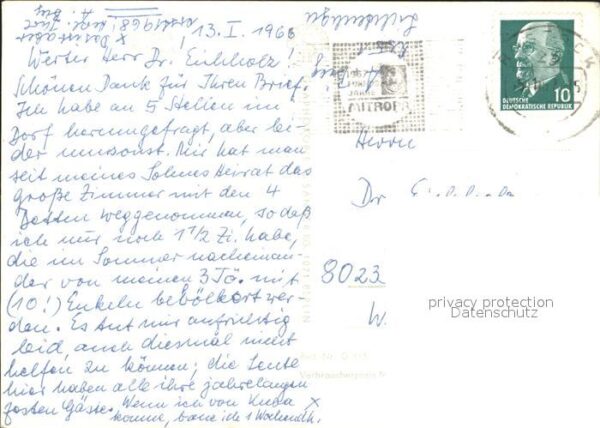 13. I. 1968
Werter Herr Dr. Eichholz!
Schönen Dank für Ihren Brief.
Ich habe an 5 Stellen im
Dorf herumgefragt, aber lei-
der umsonst. Mir hat man
seit meines Sohnes Heirat das
große Zimmer mit den 4
Betten weggenommen, so daß
ich nur noch 1 1/2 Zi. habe,
die im Sommer nacheinan-
der von meinen 3 Tö. mit
(10!) Enkeln bevölkert wer-
den. Es tut mir aufrichtig
leid, auch diesmal nicht
helfen zu können; die Leute
hier haben alle ihre jahrelangen
festen Gäste. Wenn ich von Kuba x
komme, baue ich 1 Wochendh.
MITROPA
DEUTSCHE
DEMOKRATISCHE REPUBLIK
10
Herrn
Dr
8023
W.
privacy protection
Datenschutz